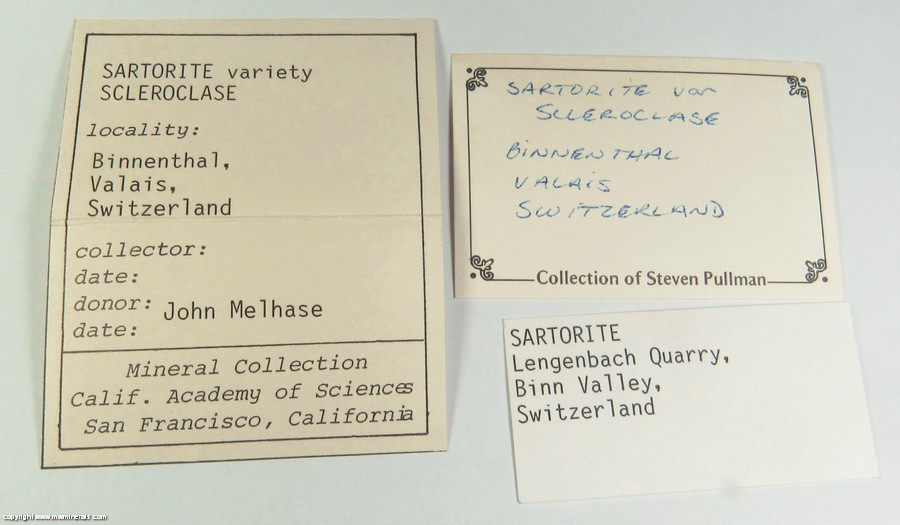 SARTORITE variety
SCLEROCLASE
locality:
Binnenthal,
Valais,
Switzerland
collector:
date:
donor: John Melhase
date:
Mineral Collection
Calif. Academy of Sciences
San Francisco, California
SARTORITE var
SCLEROCLASE
BINNENTHAL
VALAIS
SWITZERLAND
Collection of Steven Pullman
SARTORITE
Lengenbach Quarry,
Binn Valley,
Switzerland
copyright www.mwminerals.com